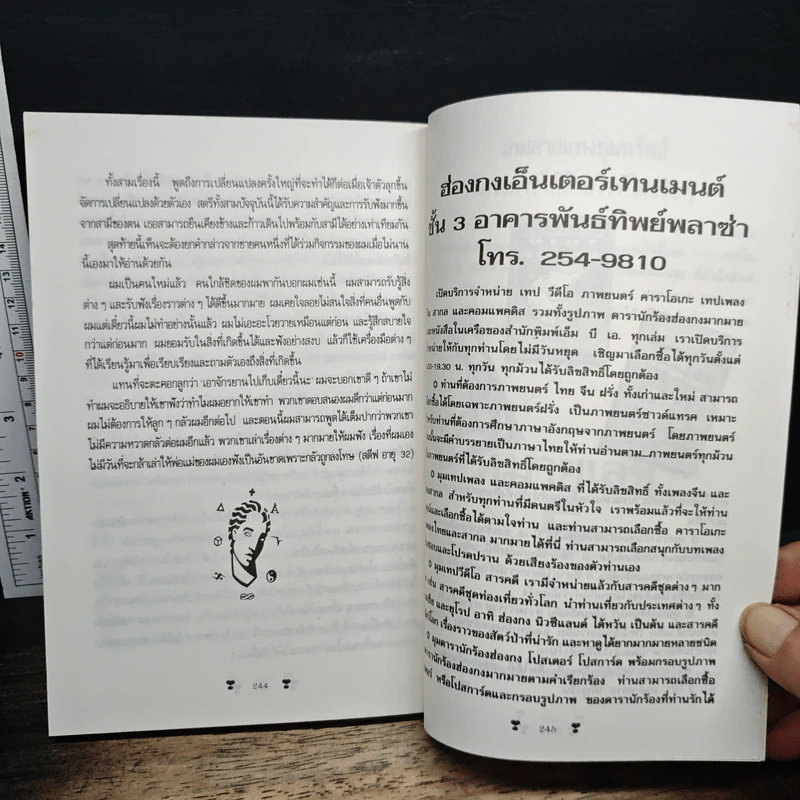 ทั้งสามเรื่องนี้ พูดถึงการเปลี่ยนแปลงครั้งใหญ่ที่จะทำได้ก็ต่อเมื่อเจ้าตัวลุกขึ้น
จัดการเปลี่ยนแปลงด้วยตัวเอง สตรีทั้งสามปัจจุบันนี้ได้รับความสำคัญและการรับฟังมากขึ้น
จากสามีของตน เธอสามารถยืนเคียงข้างและก้าวเดินไปพร้อมกับสามีได้อย่างเท่าเทียมกัน
สุดท้ายนี้เห็นจะต้องยกคำกล่าวจากชายคนหนึ่งที่ได้ร่วมกิจกรรมของผมเมื่อไม่นาน
นี้เองมาให้อ่านด้วยกัน
ผมเป็นคนใหม่แล้ว คนใกล้ชิดของผมพากันบอกผมเช่นนี้ ผมสามารถรับรู้สิ่ง
ต่าง ๆ และรับฟังเรื่องราวต่าง ๆ ได้ดีขึ้นมากมาย ผมเคยใจลอยไม่สนใจสิ่งที่คนอื่นพูดกับ
ผมแต่เดี๋ยวนี้ผมไม่ทำอย่างนั้นแล้ว ผมไม่เอะอะโวยวายเหมือนแต่ก่อน และรู้สึกสบายใจ
กว่าแต่ก่อนมาก ผมยอมรับในสิ่งที่เกิดขึ้นได้และฟังอย่างสงบ แล้วก็ใช้เครื่องมือต่าง ๆ
ที่ได้เรียนรู้มาเพื่อเรียบเรียงและถามตัวเองถึงสิ่งที่เกิดขึ้น
แทนที่จะตะคอกลูกว่า 'เอาจักรยานไปเก็บเดี๋ยวนี้นะ' ผมจะบอกเขาดี ๆ ถ้าเขาไม่
ทำผมจะอธิบายให้เขาฟังว่าทำไมผมอยากให้เขาทำ พวกเขาตอบสนองผมดีกว่าแต่ก่อนมาก
ผมไม่ต้องการให้ลูก ๆ กลัวผมอีกต่อไป และตอนนี้ผมสามารถพูดได้เต็มปากว่าพวกเขา
ไม่มีความหวาดกลัวต่อผมอีกแล้ว พวกเขาเล่าเรื่องต่าง ๆ มากมายให้ผมฟัง เรื่องที่ผมเอง
ไม่มีวันที่จะกล้าเล่าให้พ่อแม่ของผมเองฟังเป็นอันขาดเพราะกลัวถูกลงโทษ (สตีฟ อายุ 32)
244
ฮ่องกงเอ็นเตอร์เทนเมนต์
ชั้น 3 อาคารพันธ์ทิพย์พลาซ่า
โทร. 254-9810
เปิดบริการจำหน่าย เทป วีดีโอ ภาพยนตร์ คาราโอเกะ เทปเพลง
สากล และคอมแพคดิส รวมทั้งรูปภาพ ดารานักร้องฮ่องกงมากมาย
หนังสือในเครือของสำนักพิมพ์เอ็ม บี เอ. ทุกเล่ม เราเปิดบริการ
ให้กับทุกท่านโดยไม่มีวันหยุด เชิญมาเลือกซื้อได้ทุกวันตั้งแต่
00-19.30 น. ทุกวัน ทุกม้วนได้รับลิขสิทธิ์โดยถูกต้อง
o ท่านที่ต้องการภาพยนตร์ ไทย จีน ฝรั่ง ทั้งเก่าและใหม่ สามารถ
เลือกซื้อได้โดยเฉพาะภาพยนตร์ฝรั่ง เป็นภาพยนตร์ซาวด์แทรค เหมาะ
สำหรับท่านที่ต้องการศึกษาภาษาอังกฤษจากภาพยนตร์ โดยภาพยนตร์
นั้นจะมีคำบรรยายเป็นภาษาไทยให้ท่านอ่านตาม...ภาพยนตร์ทุกม้วน
ภาพยนตร์ที่ได้รับลิขสิทธิ์โดยถูกต้อง
o มุมเทปเพลง และคอมแพคดิส ที่ได้รับลิขสิทธิ์ ทั้งเพลงจีน และ
สากล สำหรับทุกท่านที่มีดนตรีในหัวใจ เราพร้อมแล้วที่จะให้ท่าน
และเลือกซื้อได้ตามใจท่าน และท่านสามารถเลือกซื้อ คาราโอเกะ
ไทยและสากล มากมายได้ที่นี่ ท่านสามารถเลือกสนุกกับบทเพลง
ชอบและโปรดปราน ด้วยเสียงร้องของตัวท่านเอง
o มุมเทปวีดีโอ สารคดี เรามีจำหน่ายแล้วกับสารคดีชุดต่าง ๆ มาก
เช่น สารคดีชุดท่องเที่ยวทั่วโลก นำท่านเที่ยวกับประเทศต่าง ๆ ทั้ง
และยุโรป อาทิ ฮ่องกง นิวซีแลนด์ ไต้หวัน เป็นต้น และสารคดี
โลก เรื่องราวของสัตว์ป่าที่น่ารัก และหาดูได้ยากมากมายหลายชนิด
o มุมดารานักร้องฮ่องกง โปสเตอร์ โปสการ์ด พร้อมกรอบรูปภาพ
ดารานักร้องฮ่องกงมากมายตามคำเรียกร้อง ท่านสามารถเลือกซื้อ
หรือโปสการ์ดและกรอบรูปภาพ ของดารานักร้องที่ท่านรักได้
245